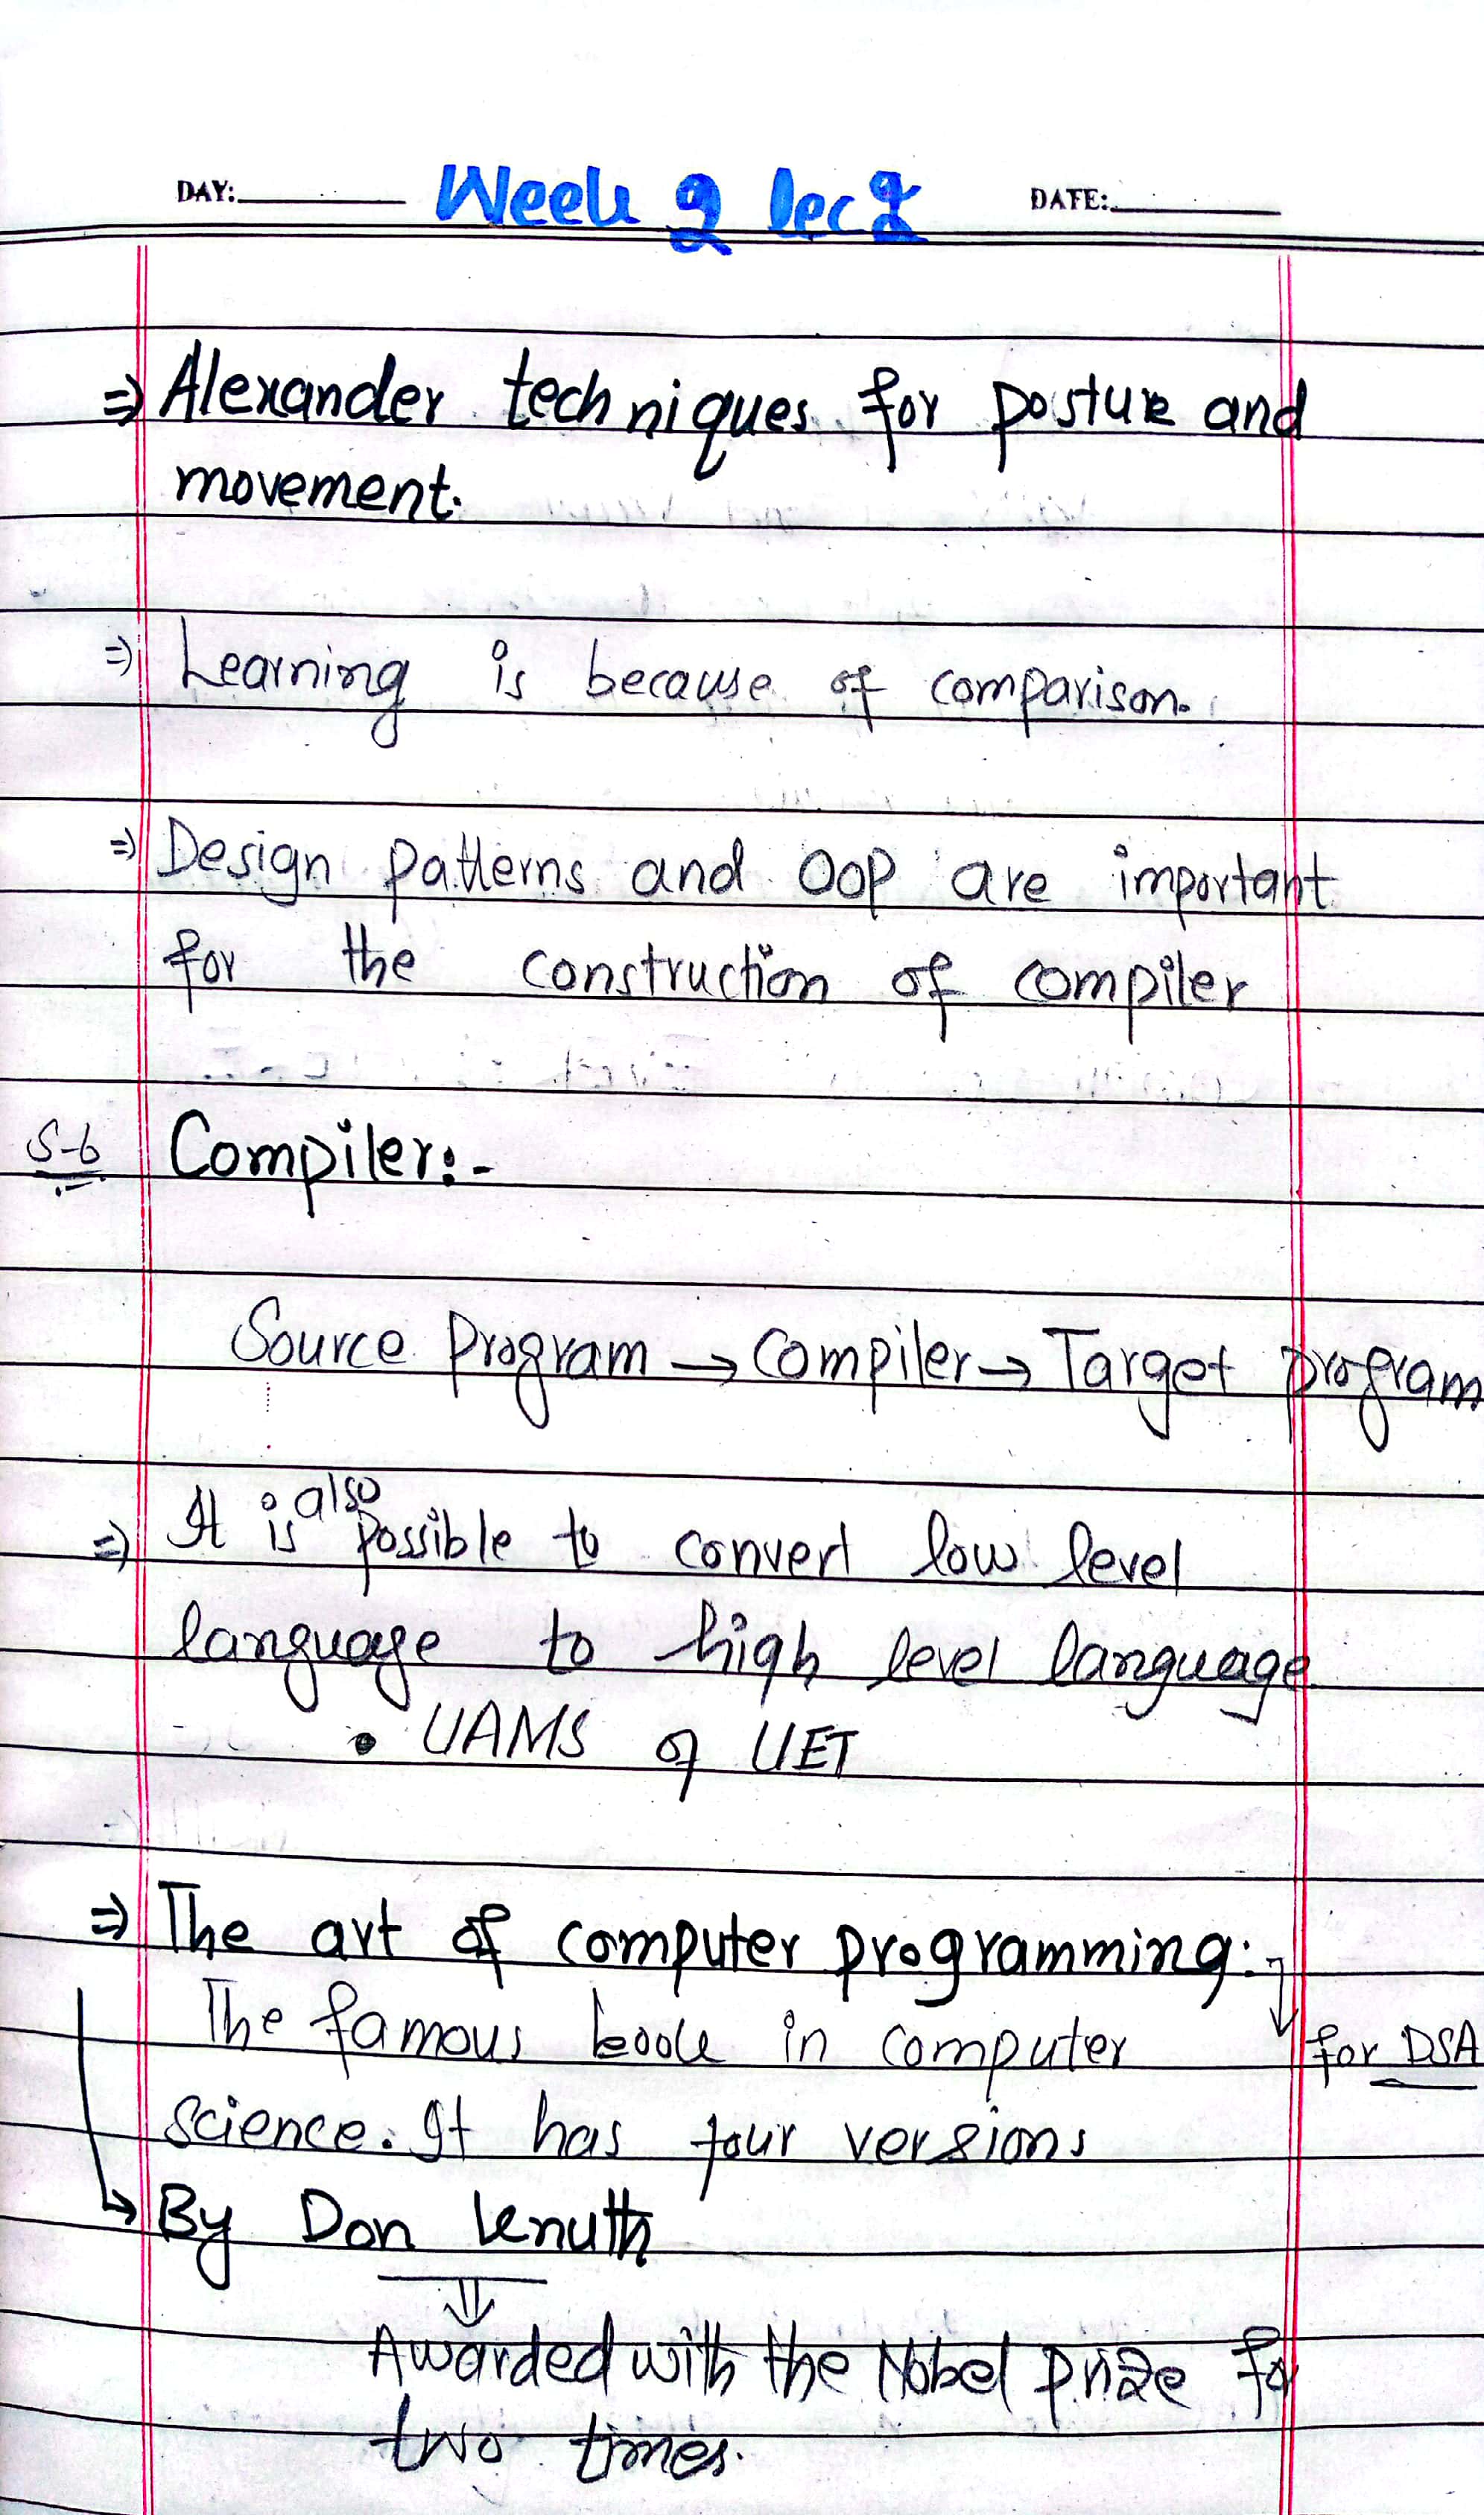 DAY: Week 2 lec 2 DATE:
⇒ Alexander techniques for posture and
movement.
⇒ Learning is because of comparison.
⇒ Design patterns and OOP are important
for the construction of compiler
S-6 Compiler:-
Source Program → Compiler → Target program
also
⇒ It is possible to convert low level
language to high level language
• UAMS of UET
⇒ The art of computer programming:
The famous book in computer
for DSA
science. It has four versions
By Don Knuth
Awarded with the Nobel Prize fo
two times.